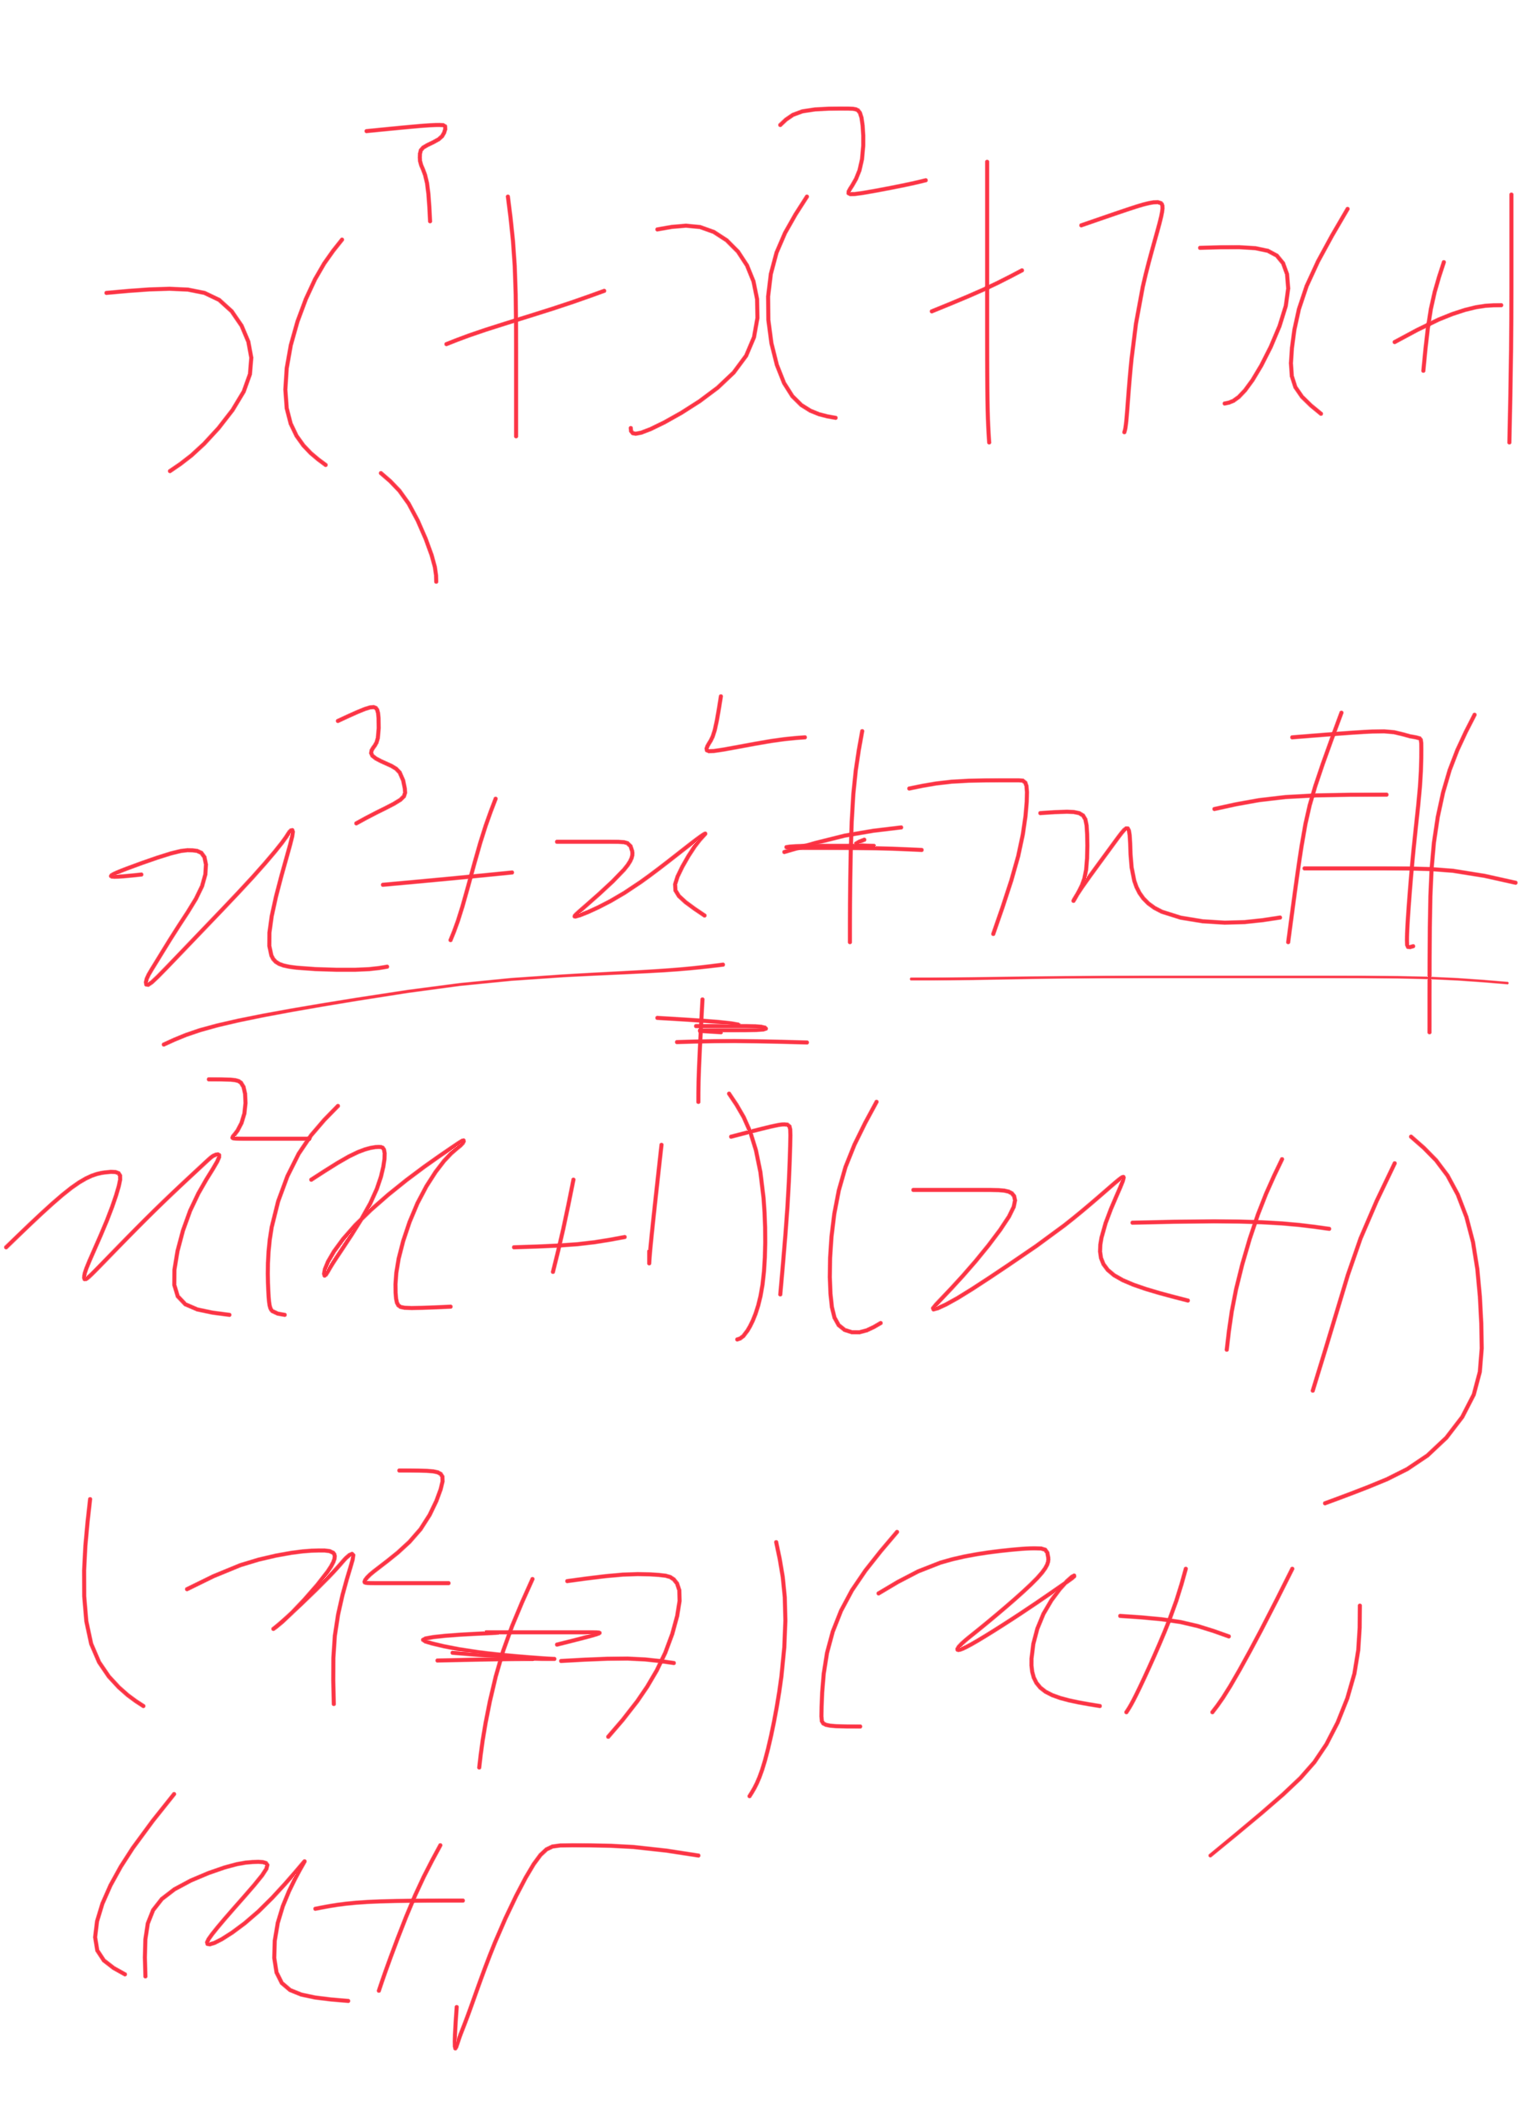 x³ + x² + 7x + 1
x³ + x² + 7x + 7
x²(x+1) + 7(x+1)
(x² + 7)(x+1)
(x + √